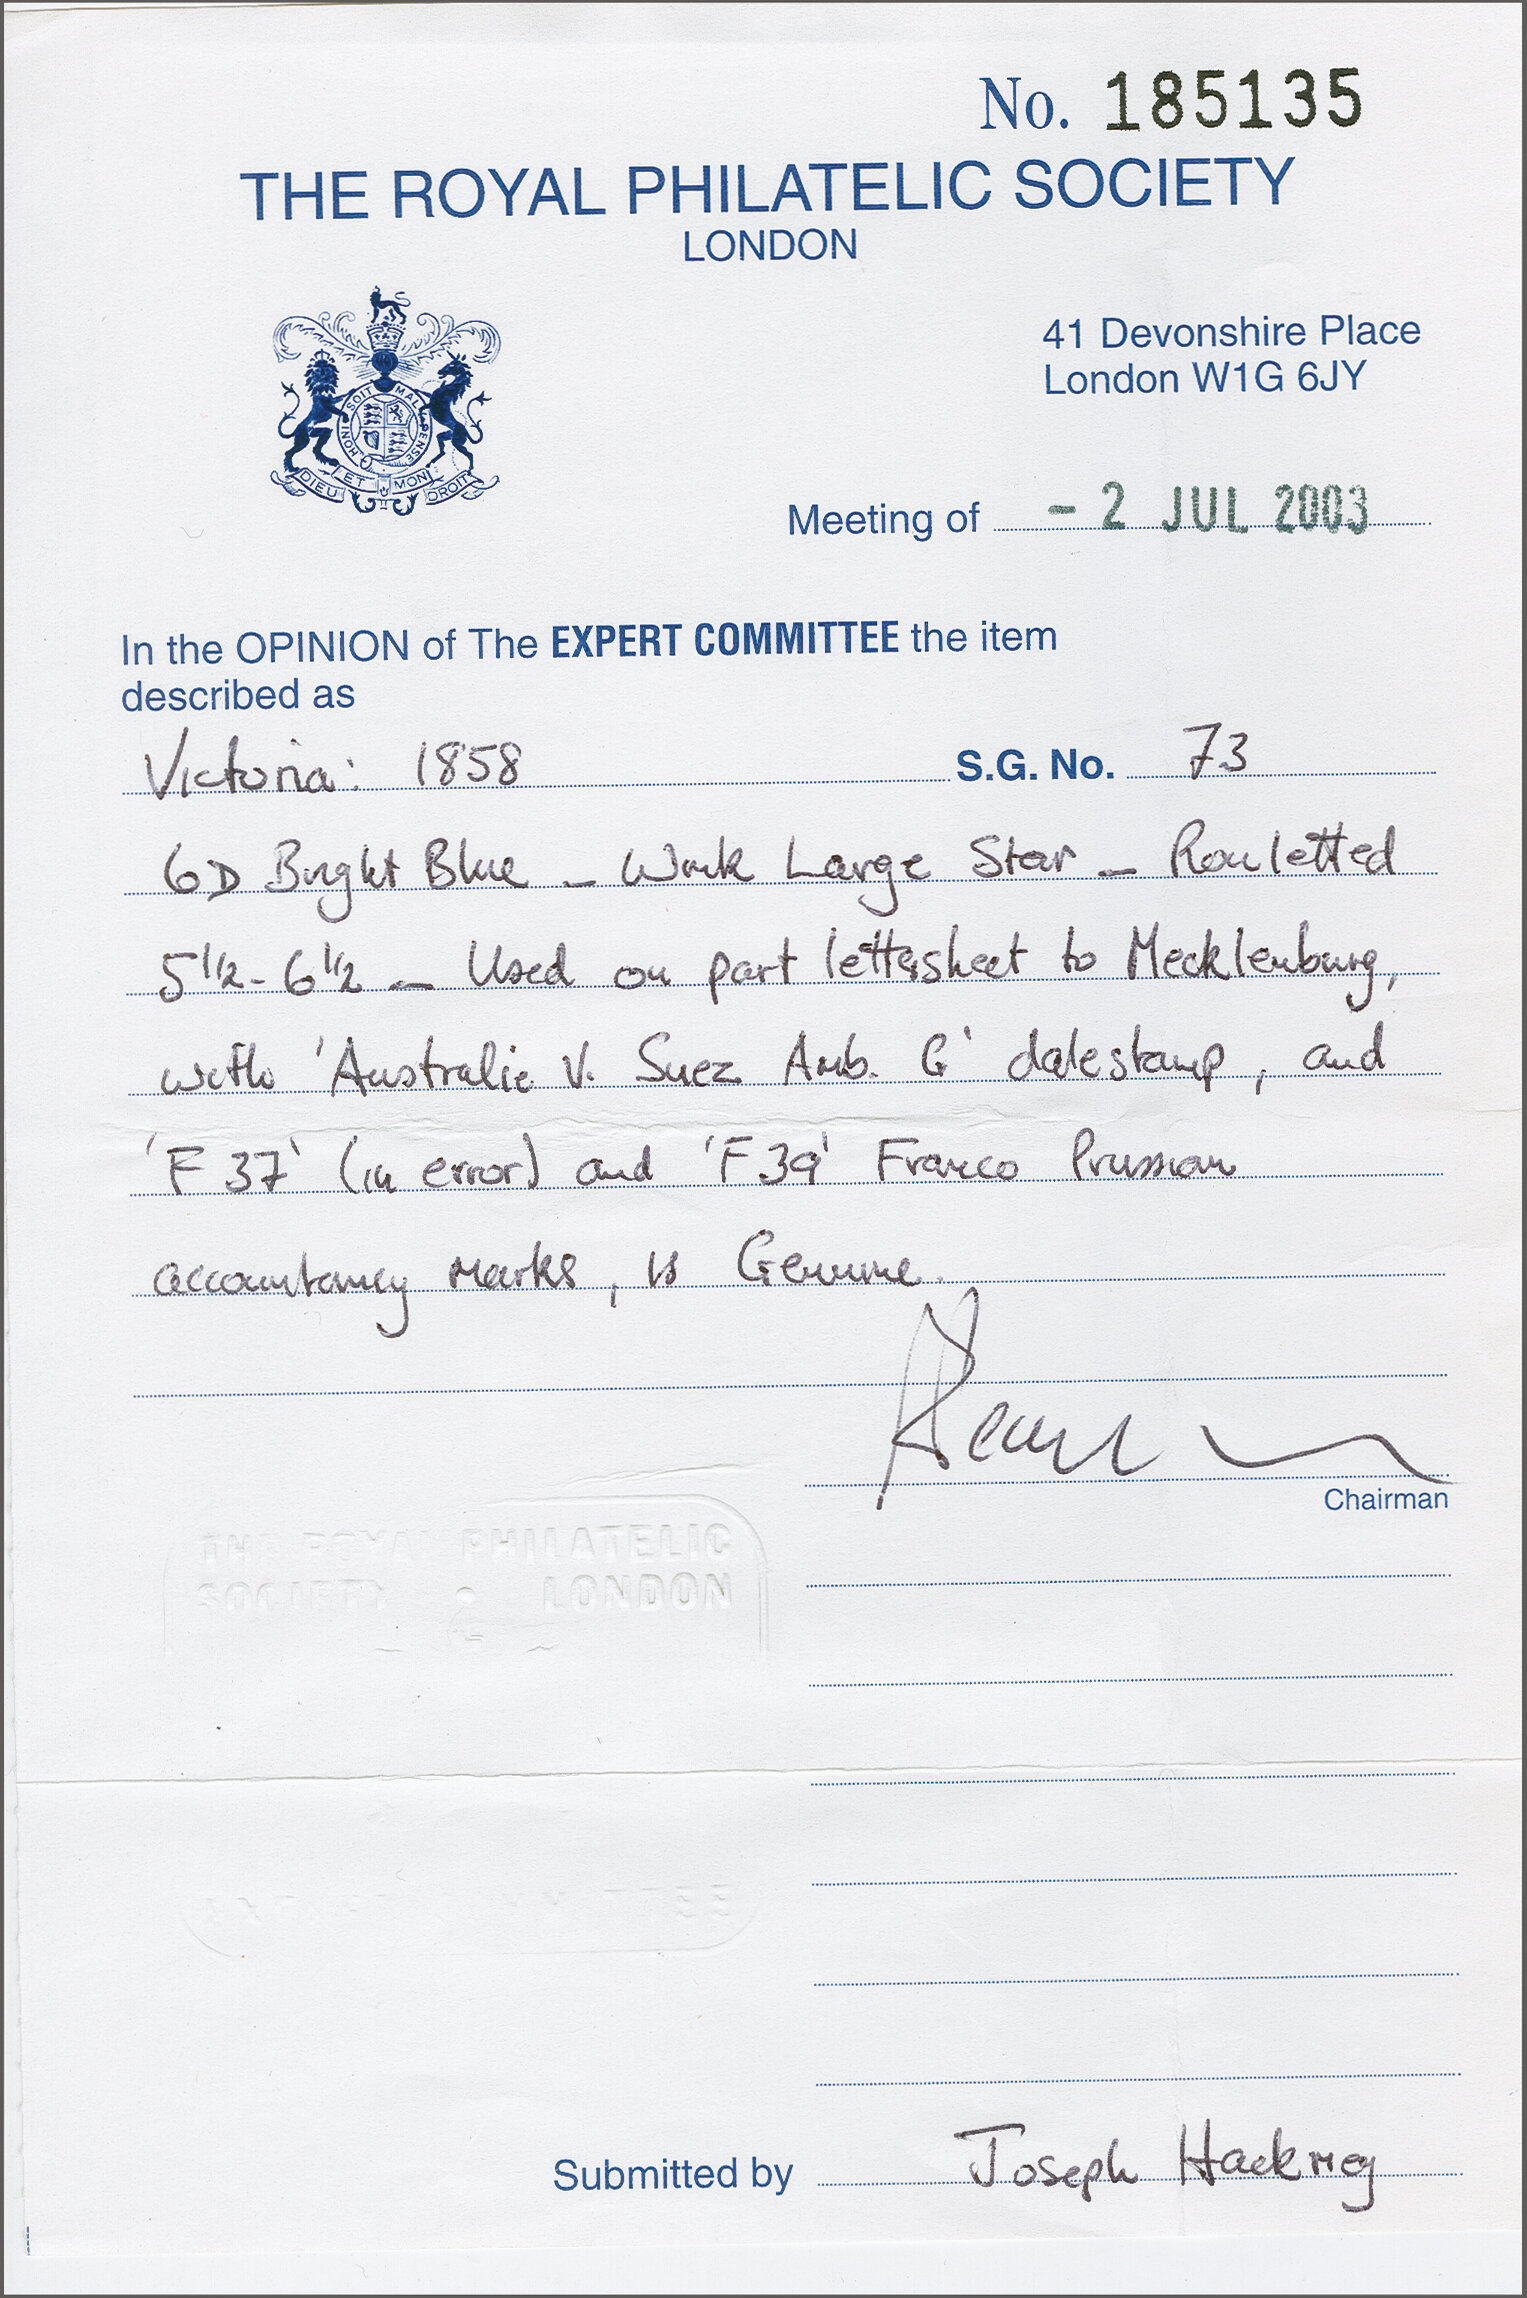 No. 185135
THE ROYAL PHILATELIC SOCIETY
LONDON
41 Devonshire Place
London W1G 6JY
SOIT MAL PENSE HONI
DIEU ET MON DROIT
Meeting of - 2 JUL 2003
In the OPINION of The EXPERT COMMITTEE the item
described as
Victoria: 1858 S.G. No. 73
6D Bright Blue – Wmk Large Star – Rouletted
5½-6½ – Used on part lettersheet to Mecklenburg,
with 'Australie V. Suez Amb. G' datestamp, and
'F37' (in error) and 'F39' Franco Prussian
accountancy marks, is Genuine.
Chairman
THE ROYAL PHILATELIC
SOCIETY • LONDON
Submitted by Joseph Hackmey